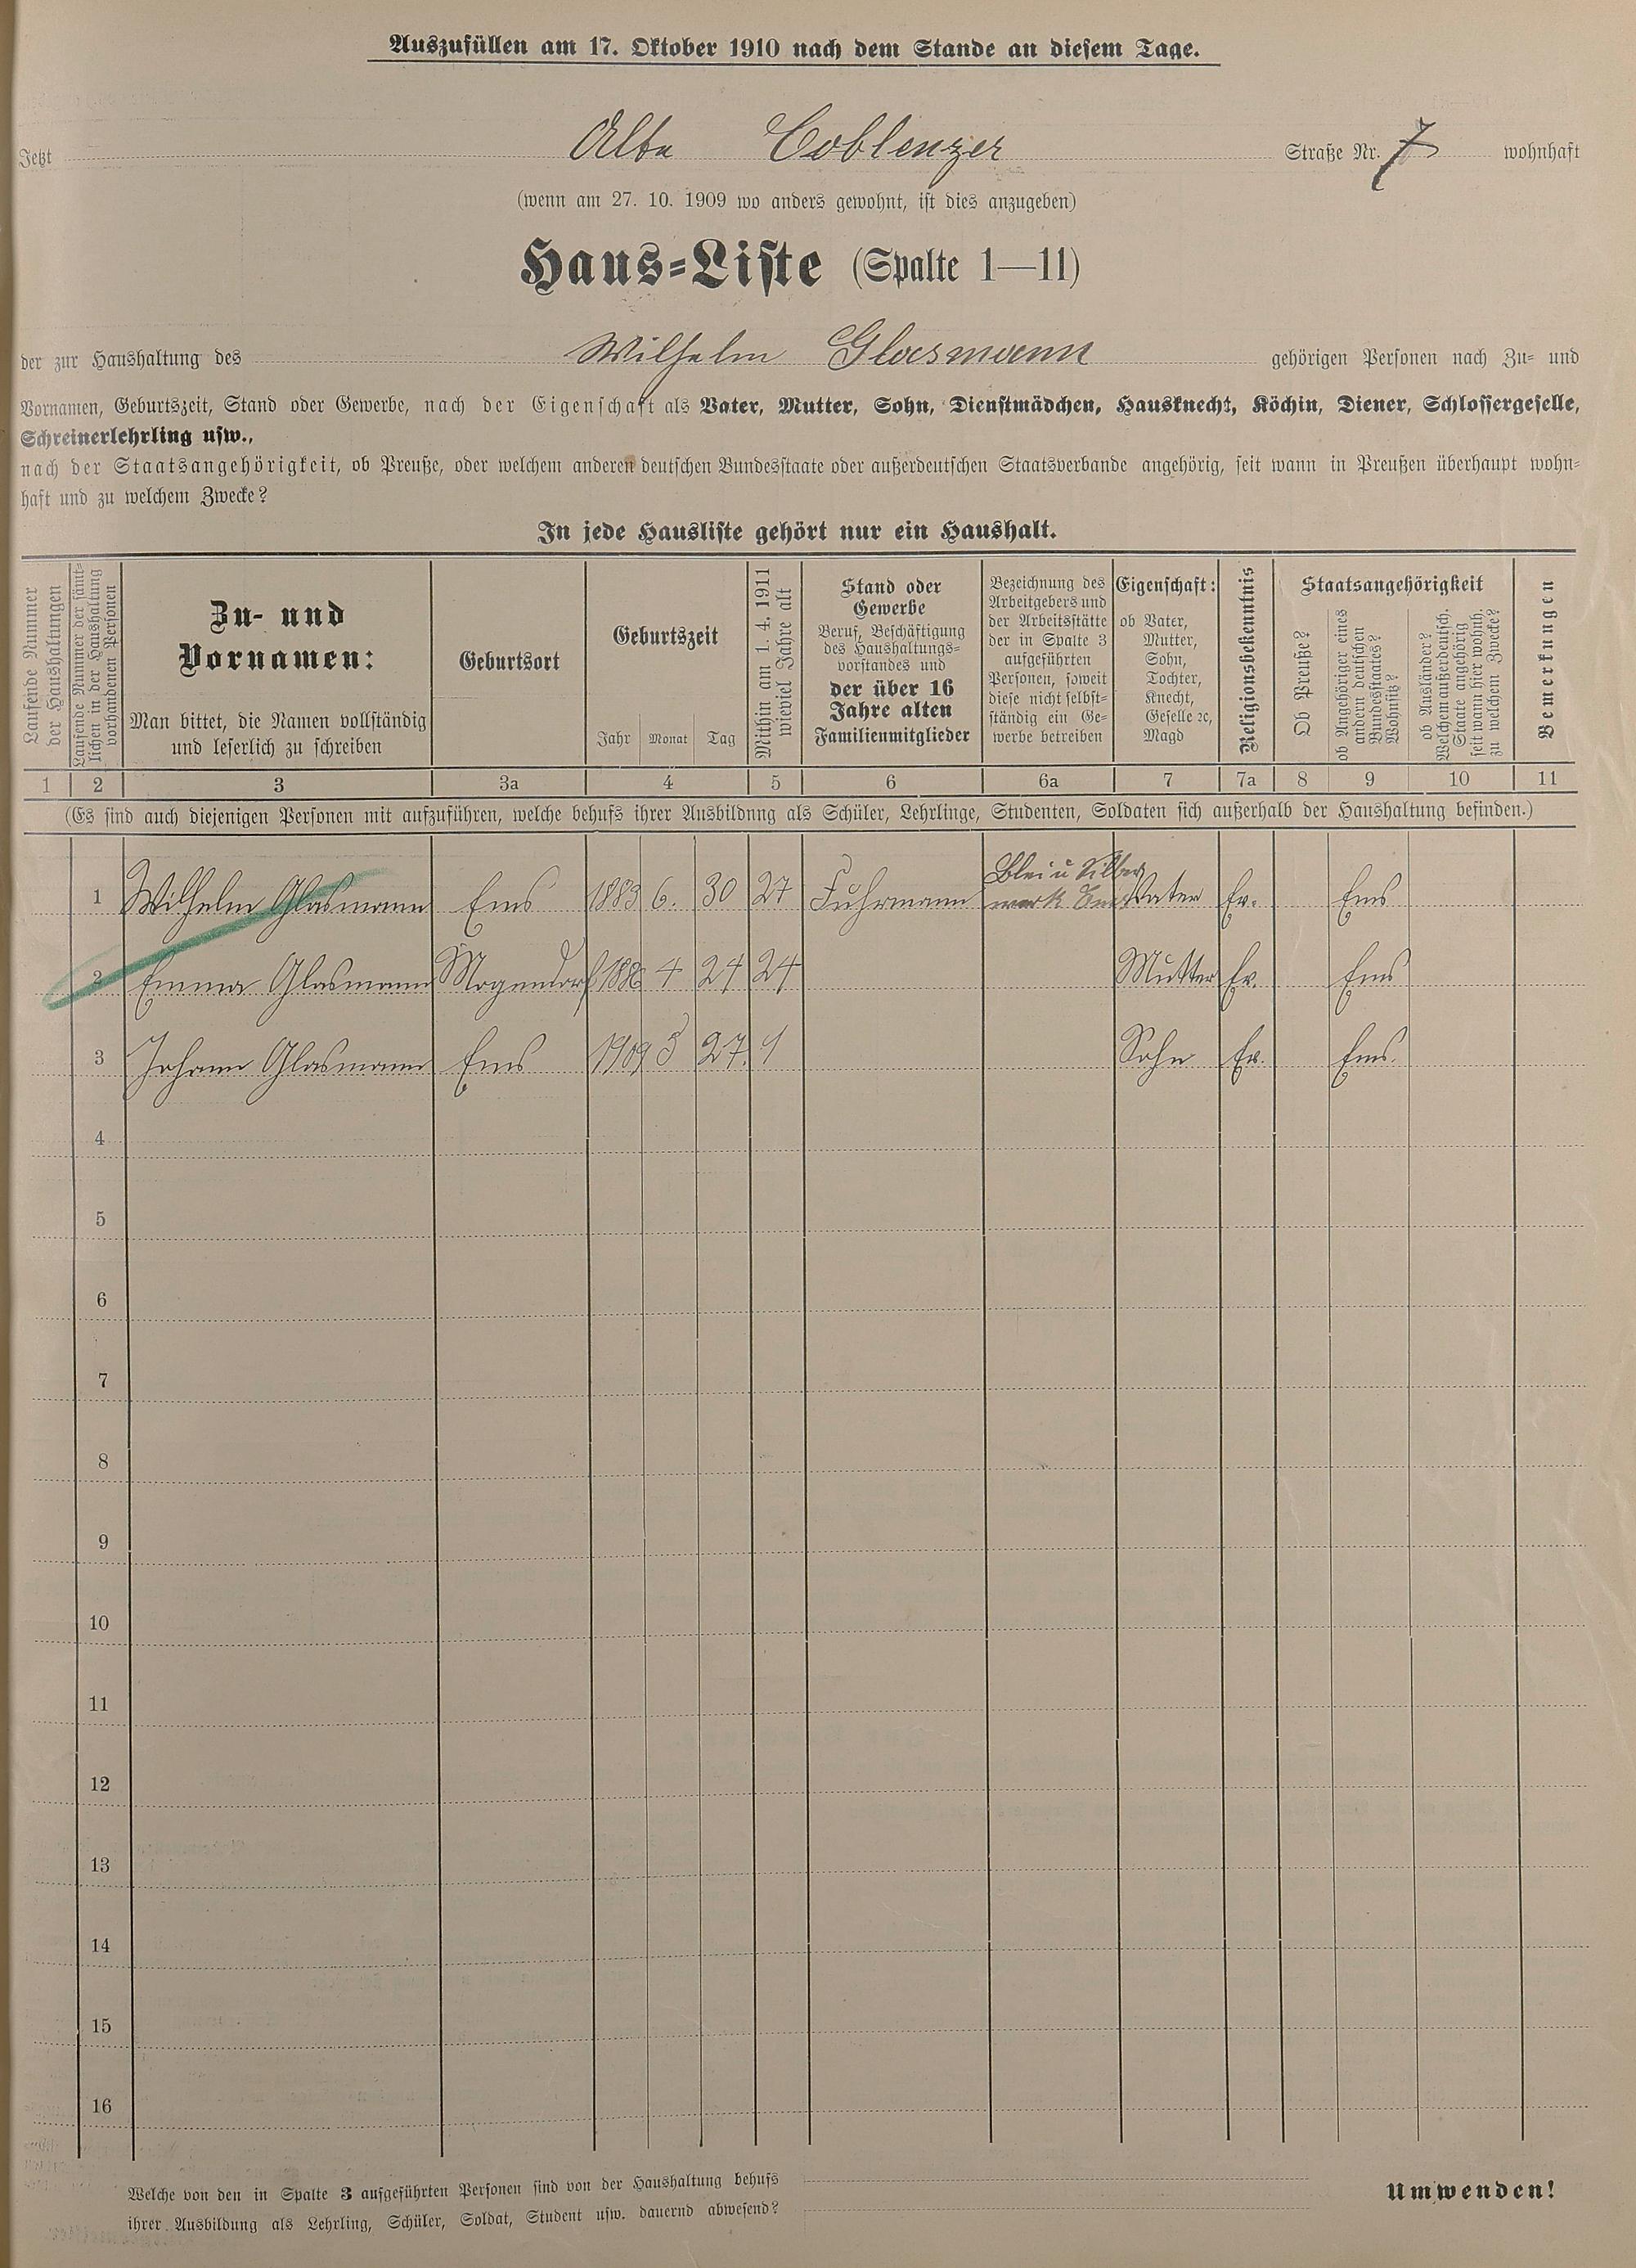 Auszufüllen am 17. Oktober 1910 nach dem Stande an diesem Tage.
Jetzt Alte Coblenzer Straße Nr. 7 wohnhaft
(wenn am 27. 10. 1909 wo anders gewohnt, ist dies anzugeben)
Haus-Liste (Spalte 1—11)
der zur Haushaltung des Wilhelm Glasmann gehörigen Personen nach Zu- und
Vornamen, Geburtszeit, Stand oder Gewerbe, nach der Eigenschaft als Vater, Mutter, Sohn, Dienstmädchen, Hausknecht, Köchin, Diener, Schlossergeselle,
Schreinerlehrling usw.,
nach der Staatsangehörigkeit, ob Preuße, oder welchem anderen deutschen Bundesstaate oder außerdeutschen Staatsverbande angehörig, seit wann in Preußen überhaupt wohn-
haft und zu welchem Zwecke?
In jede Hausliste gehört nur ein Haushalt.
Laufende Nummer
der Haushaltungen
Laufende Nummer der sämt-
lichen in der Haushaltung
vorhandenen Personen
Zu- und
Vornamen:
Man bittet, die Namen vollständig
und leserlich zu schreiben
Geburtsort
Geburtszeit
Jahr Monat Tag
Mithin am 1. 4. 1911
wieviel Jahre alt
Stand oder
Gewerbe
Beruf, Beschäftigung
des Haushaltungs-
vorstandes und
der über 16
Jahre alten
Familienmitglieder
Bezeichnung des
Arbeitgebers und
der Arbeitsstätte
der in Spalte 3
aufgeführten
Personen, soweit
diese nicht selbst-
ständig ein Ge-
werbe betreiben
Eigenschaft:
ob Vater,
Mutter,
Sohn,
Tochter,
Knecht,
Geselle ꝛc,
Magd
Religionsbekenntnis
Staatsangehörigkeit
Ob Preuße?
ob Angehöriger eines
andern deutschen
Bundesstaates?
Wohnsitz?
ob Ausländer?
Welchem außerdeutsch.
Staate angehörig
seit wann hier wohnh.
zu welchem Zwecke?
Bemerkungen
1 2 3 3a 4 5 6 6a 7 7a 8 9 10 11
(Es sind auch diejenigen Personen mit aufzuführen, welche behufs ihrer Ausbildnng als Schüler, Lehrlinge, Studenten, Soldaten sich außerhalb der Haushaltung befinden.)
Blei u Silber
1 Wilhelm Glasmann Ems 1883 6. 30 27 Fuhrmann werk Ems Vater Ev. Ems
2 Emma Glasmann Mogendorf 1886 4 24 24 Mutter Ev. Ems
3 Johann Glasmann Ems 1909 3 27. 1 Sohn Ev. Ems.
4
5
6
7
8
9
10
11
12
13
14
15
16
Welche von den in Spalte 3 aufgeführten Personen sind von der Haushaltung behufs
ihrer Ausbildung als Lehrling, Schüler, Soldat, Student usw. dauernd abwesend?
Umwenden!